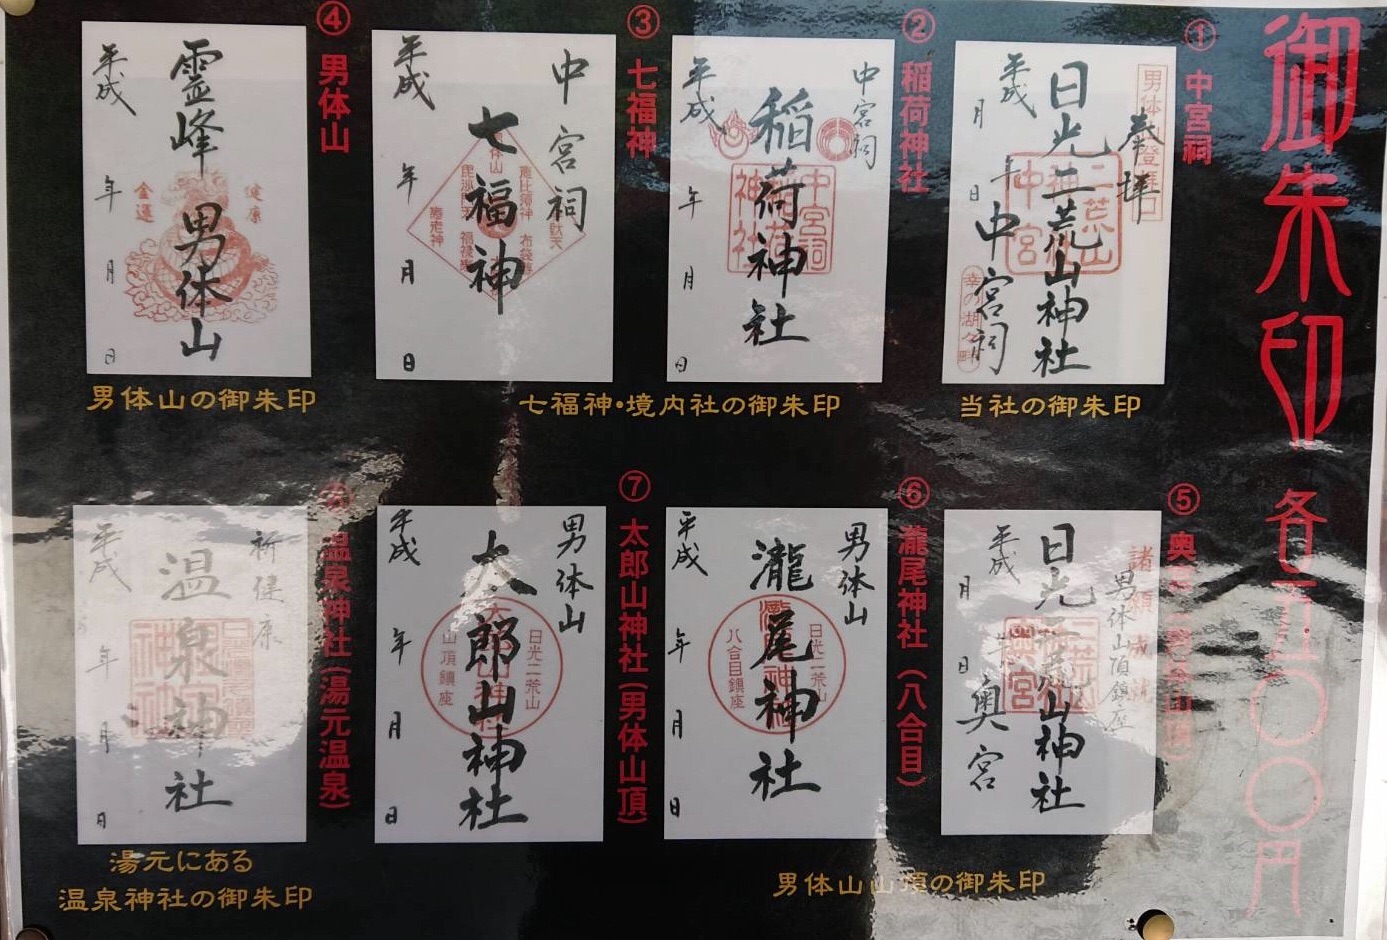 御朱印 各五〇〇円
①中宮祠
奉拝
日光二荒山神社
中宮祠
平成 年 月 日
当社の御朱印
②稲荷神社
中宮祠
稲荷神社
平成 年 月 日
③七福神
中宮祠
七福神
平成 年 月 日
七福神・境内社の御朱印
④男体山
霊峰 男体山
健康
金運
平成 年 月 日
男体山の御朱印
⑤奥宮
諸願成就
男体山頂鎮座
日光二荒山神社
奥宮
平成 年 月 日
⑥瀧尾神社(八合目)
男体山
瀧尾神社
日光二荒山
八合目鎮座
平成 年 月 日
⑦太郎山神社(男体山頂)
男体山
太郎山神社
日光二荒山
山頂鎮座
平成 年 月 日
男体山山頂の御朱印
温泉神社(湯元温泉)
祈健康
温泉神社
平成 年 月 日
湯元にある
温泉神社の御朱印